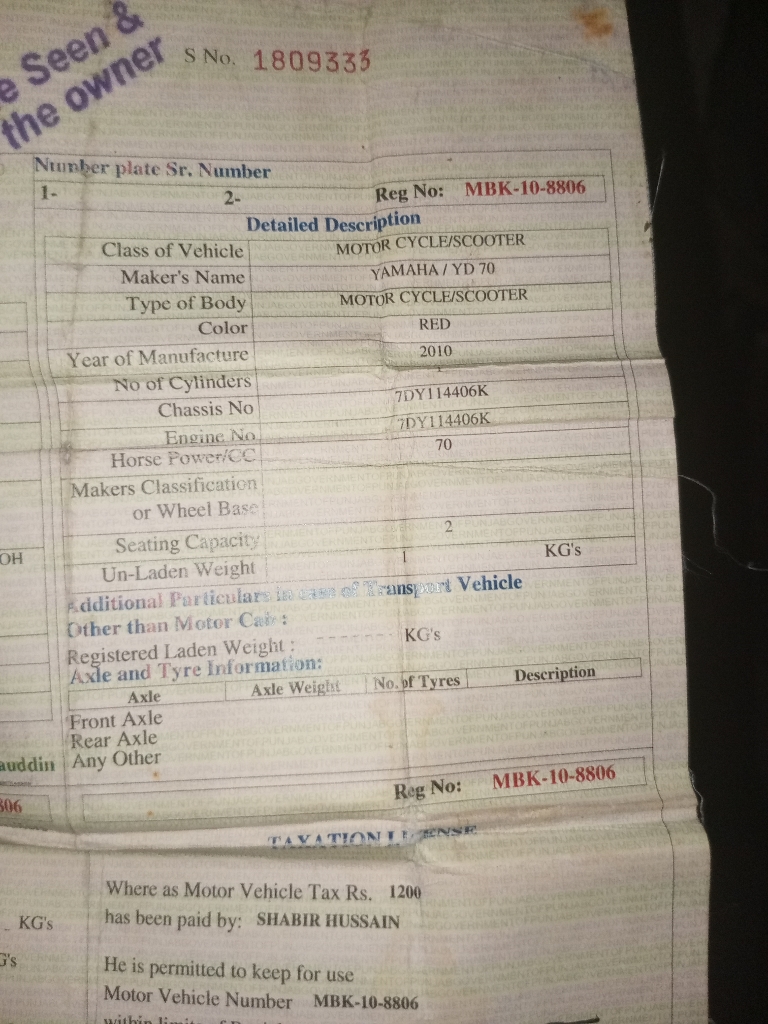 e Seen &
the owner
S No. 1809333
Number plate Sr. Number
1- 2- Reg No: MBK-10-8806
Detailed Description
Class of Vehicle MOTOR CYCLE/SCOOTER
Maker's Name YAMAHA / YD 70
Type of Body MOTOR CYCLE/SCOOTER
Color RED
Year of Manufacture 2010
No of Cylinders 1
Chassis No 7DY114406K
Engine No 7DY114406K
Horse Power/CC 70
Makers Classification
or Wheel Base
Seating Capacity 2
OH
Un-Laden Weight 1 KG's
Additional Particulars in case of Transport Vehicle
Other than Motor Cab :
Registered Laden Weight : - - - - - - - KG's
Axle and Tyre Information:
Axle Axle Weight No. of Tyres Description
Front Axle
Rear Axle
auddin Any Other
806 Reg No: MBK-10-8806
TAXATION LICENSE
Where as Motor Vehicle Tax Rs. 1200
KG's has been paid by: SHABIR HUSSAIN
G's He is permitted to keep for use
Motor Vehicle Number MBK-10-8806